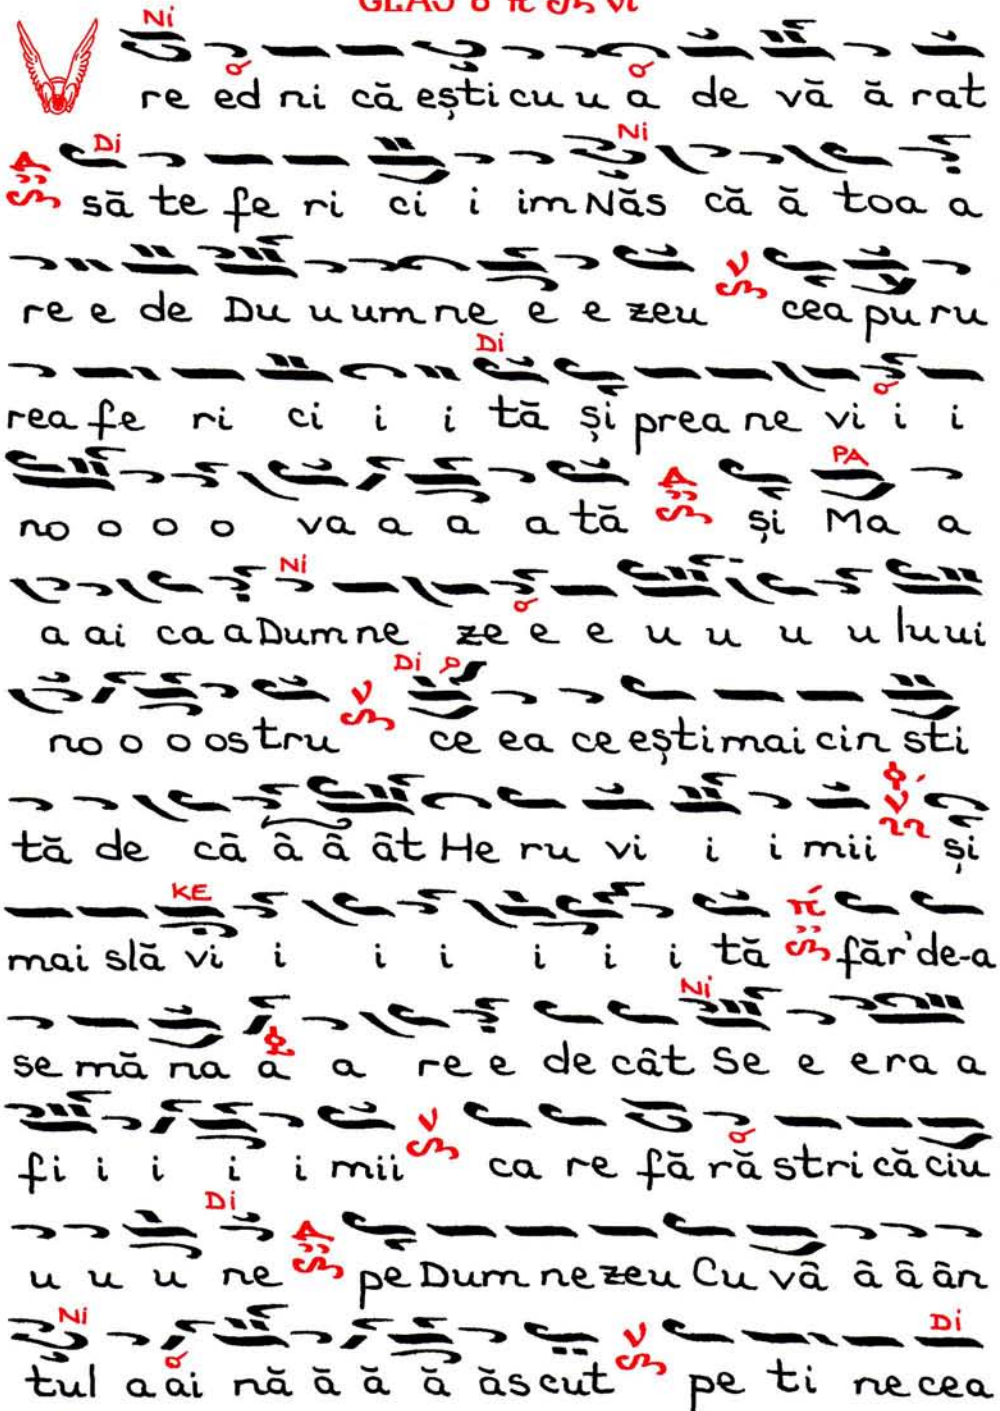 GLAS 8 Ni
Ni
re ed ni că ești cu u a de vă ă rat
Di Ni
să te fe ri ci i im Năs că ă toa a
re e de Du u um ne e e zeu cea pu ru
Di
rea fe ri ci i i tă și prea ne vi i i
PA
no o o o va a a a tă și Ma a
Ni
a ai ca a Dum ne ze e e u u u u lui ui
Di
no o o os tru ce ea ce ești mai cin sti
tă de câ â â ât He ru vi i i mii și
KE
mai slă vi i i i i i i tă făr' de-a
Ni
se mă na a a re e de cât Se e era a
fi i i i i mii ca re fă ră stri că ciu
Di
u u u ne pe Dum ne zeu Cu vâ â â ân
Ni Di
tul a ai nă ă ă ă ăs cut pe ti ne cea